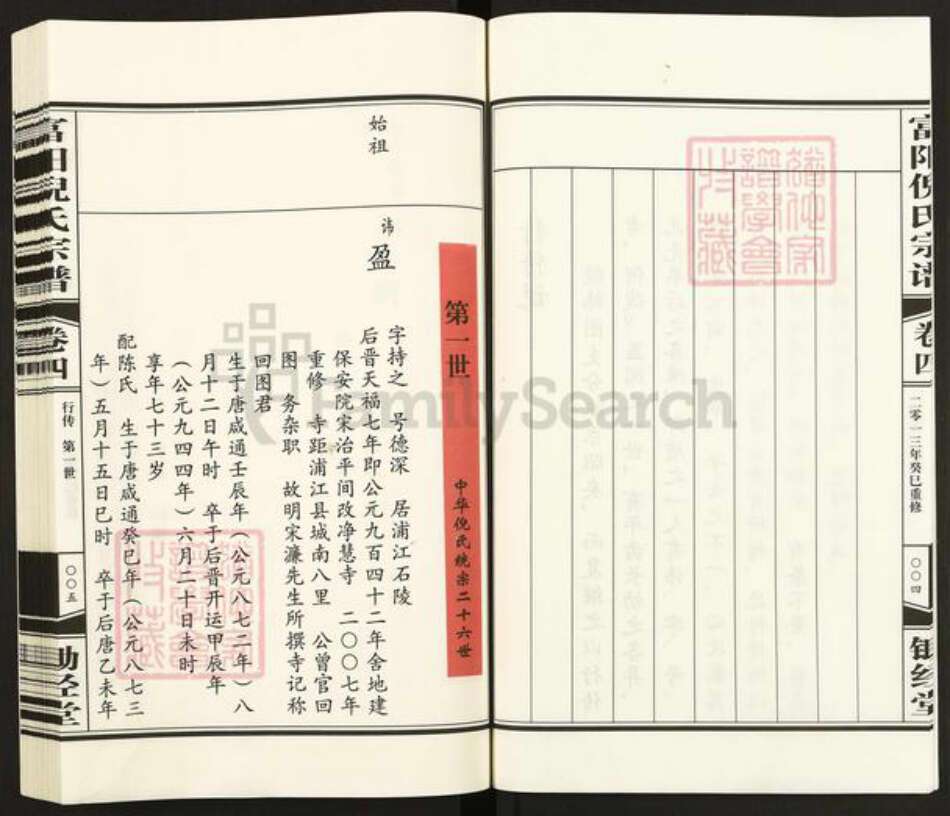 富阳倪氏宗谱
卷四
二零一三年癸巳重修
〇〇四
锄经堂
第一世
中华倪氏统宗二十六世
始祖
讳盈
字持之 号德深 居浦江石陵
后晋天福七年即公元九百四十二年舍地建
保安院宋治平间改净慧寺 二〇〇七年
重修 寺距浦江县城南八里 公曾官回
图 务杂职 故明宋濂先生所撰寺记称
回图君
生于唐咸通壬辰年（公元八七二年）八
月十二日午时 卒于后晋开运甲辰年
（公元九四四年）六月二十日未时
享年七十三岁
配陈氏 生于唐咸通癸巳年（公元八七三
年）五月十五日巳时 卒于后唐乙未年
富阳倪氏宗谱
卷四
行传 第一世
〇〇五
锄经堂
FamilySearch